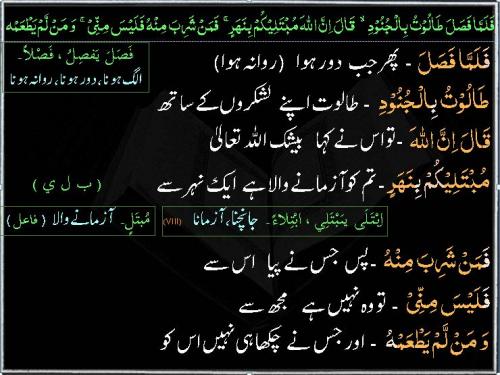 فَلَمَّا فَصَلَ طَالُوْتُ بِالْجُنُوْدِ ۙ قَالَ اِنَّ اللّٰهَ مُبْتَلِيْكُمْ بِنَهَرٍ ۚ فَمَنْ شَرِبَ مِنْهُ فَلَيْسَ مِنِّيْ ۚ وَ مَنْ لَّمْ يَطْعَمْهُ
فَصَلَ يَفصِلُ ، فَصْلاً۔
الگ ہونا، دور ہونا، روانہ ہونا
فَلَمَّا فَصَلَ - پھر جب دور ہوا (روانہ ہوا)
طَالُوْتُ بِالْجُنُوْدِ - طالوت اپنے لشکروں کے ساتھ
قَالَ اِنَّ اللّٰهَ - تو اس نے کہا بیشک اللہ تعالیٰ
مُبْتَلِيْكُمْ بِنَهَرٍ - تم کو آزمانے والا ہے ایک نہر سے
( ب ل ي )
اِبْتَلَى يَبْتَلِي ، اِبْتِلاءً۔ جانچنا، آزمانا (VIII)
مُبْتَلٍ۔ آزمانے والا (فاعل)
فَمَنْ شَرِبَ مِنْهُ - پس جس نے پیا اس سے
فَلَيْسَ مِنِّيْ - تو وہ نہیں ہے مجھ سے
وَ مَنْ لَّمْ يَطْعَمْهُ - اور جس نے چکھا ہی نہیں اس کو